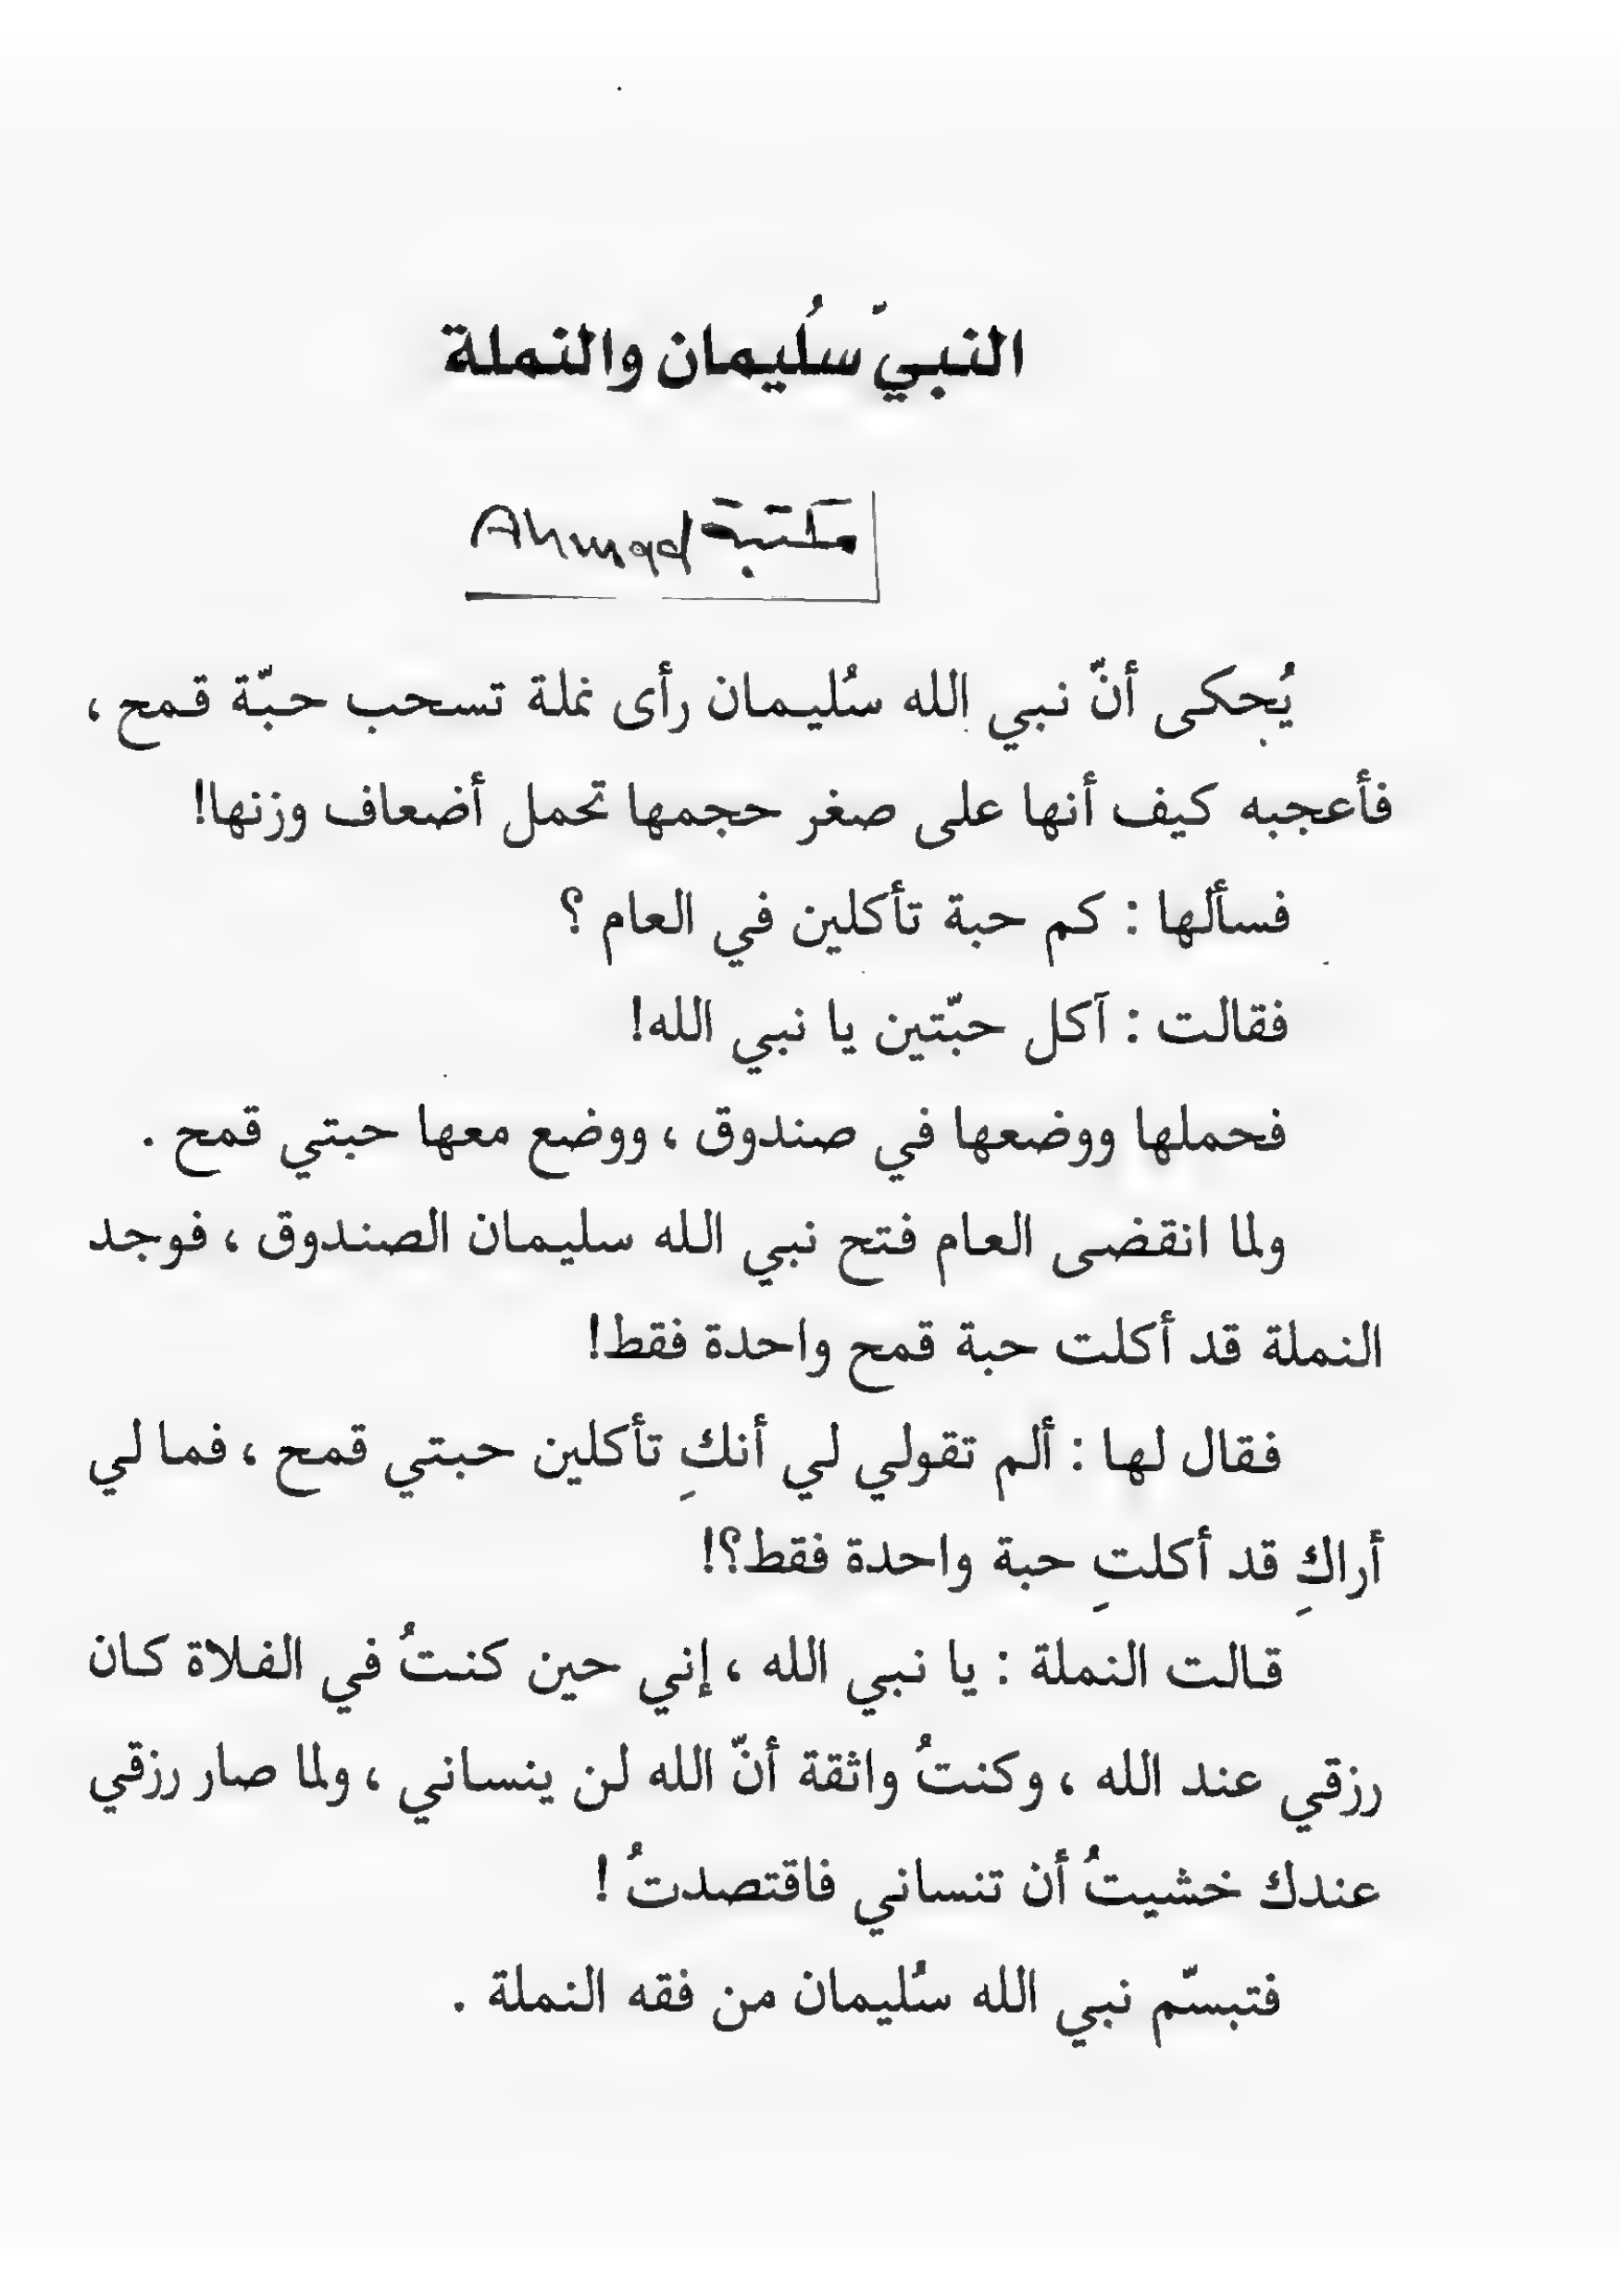 النبيّ سُليمان والنملة
مكتبة Ahmad
يُحكى أنّ نبي الله سُليمان رأى نملة تسحب حبّة قمح ،
فأعجبه كيف أنها على صغر حجمها تحمل أضعاف وزنها!
فسألها : كم حبة تأكلين في العام ؟
فقالت : آكل حبّتين يا نبي الله!
فحملها ووضعها في صندوق ، ووضع معها حبتي قمح .
ولما انقضى العام فتح نبي الله سليمان الصندوق ، فوجد
النملة قد أكلت حبة قمح واحدة فقط!
فقال لها : ألم تقولي لي أنكِ تأكلين حبتي قمح ، فما لي
أراكِ قد أكلتِ حبة واحدة فقط؟!
قالت النملة : يا نبي الله ، إني حين كنتُ في الفلاة كان
رزقي عند الله ، وكنتُ واثقة أنّ الله لن ينساني ، ولما صار رزقي
عندك خشيتُ أن تنساني فاقتصدتُ !
فتبسّم نبي الله سُليمان من فقه النملة .